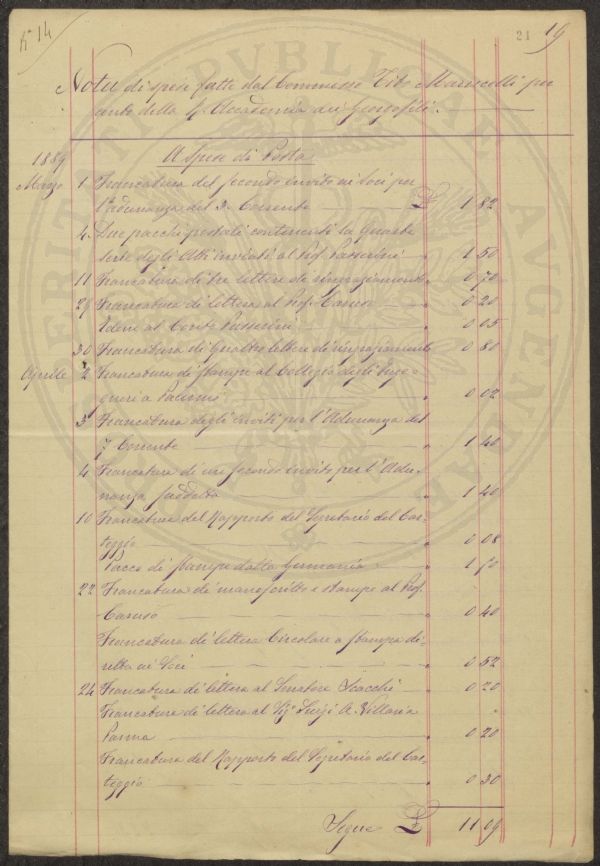 N° 14
21 19
Nota di spese fatte dal Commesso Tito Marucelli per
conto della R. Accademia dei Georgofili.
PROSPERITATI PVBLICAE AVGENDAE
A Spese di Posta
1889
Marzo 1 Francatura del secondo invito ai Soci per
l'adunanza del 3 Corrente £ 1 82
4 Due pacchi postali contenenti la Quarta
Serie degli Atti inviati al Prof. Passerini " 1 50
11 Francatura di tre lettere di ringraziamento " 0 70
29 Francatura di lettera al Prof. Caruso " 0 20
Idem al Conte Passerini " 0 05
30 Francatura di Quattro lettere di ringraziamento 0 80
Aprile 2 Francatura di stampe al Collegio degli Inge-
gneri a Palermo " 0 02
3 Francatura degli inviti per l'Adunanza del
7 Corrente " 1 40
4 Francatura di un secondo invito per l'Adu-
nanza suddetta " 1 40
10 Francatura del Rapporto del Segretario del Car-
teggio " 0 08
Pacco di stampe dalla Germania " 1 50
22 Francatura di manoscritto e stampe al Prof.
Caruso " 0 40
Francatura di lettera Circolare a stampa di-
retta ai Soci " 0 52
24 Francatura di lettera al Senatore Scacchi " 0 20
Francatura di lettera al Sig. Luigi A. Villari a
Parma " 0 20
Francatura del Rapporto del Segretario del Car-
teggio " 0 30
Segue £ 11 09